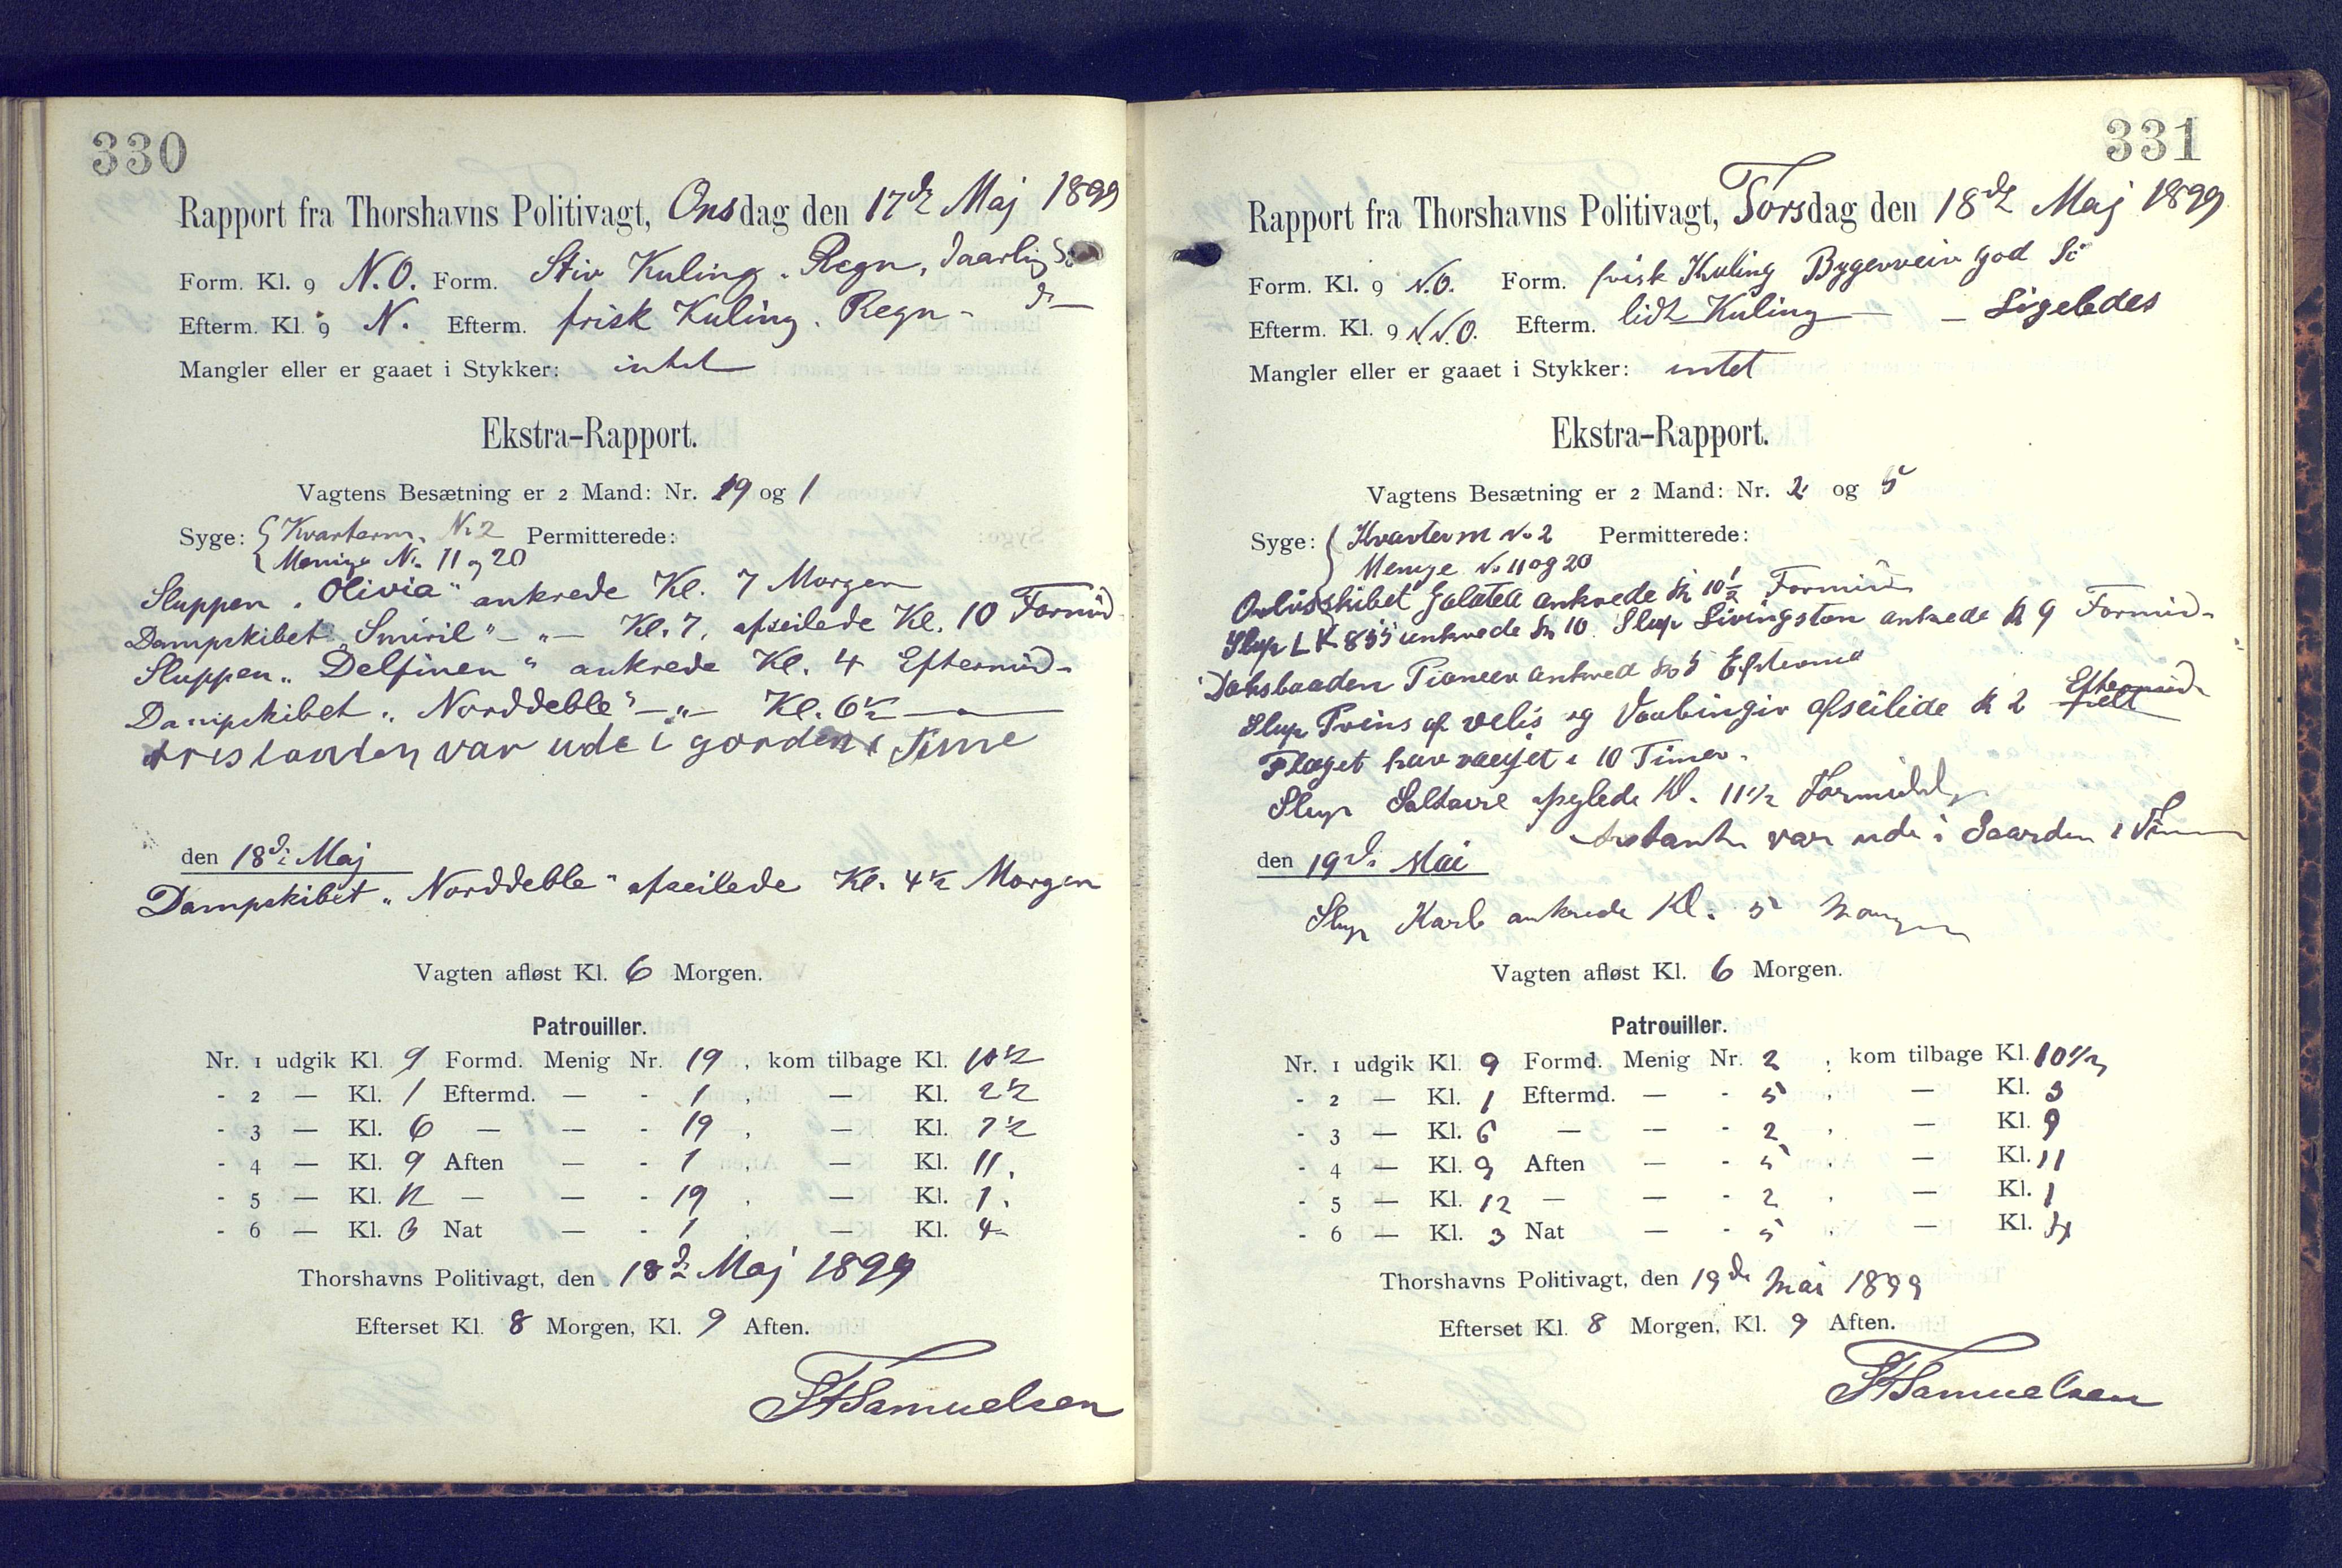 330
Rapport fra Thorshavns Politivagt, Onsdag den 17de Maj 1899
Form. Kl. 9 N.O. Form. Stiv Kuling. Regn, daarlig Sö
Efterm. Kl. 9 N. Efterm. frisk Kuling. Regn - do —
Mangler eller er gaaet i Stykker: intet
Ekstra-Rapport.
Vagtens Besætning er 2 Mand: Nr. 19 og 1
Syge: { Kvarterm. No 2 Permitterede:
Menige No 11 og 20
Sluppen „Olivia" ankrede Kl. 7 Morgen
Dampskibet „Smiril" — „ — Kl. 7, afseilede Kl. 10 Formid
Sluppen „Delfinen" ankrede Kl. 4 Eftermid-
Dampskibet „Norddeble" — „ — Kl. 6½ —
var ude i gorden 1 Time
den 18de Maj
Dampskibet „Norddeble" afseilede Kl. 4½ Morgen
Vagten afløst Kl. 6 Morgen.
Patrouiller.
Nr. 1 udgik Kl. 9 Formd. Menig Nr. 19, kom tilbage Kl. 10½
- 2 — Kl. 1 Eftermd. — - 1, — Kl. 2½
- 3 — Kl. 6 — — - 19, — Kl. 7½
- 4 — Kl. 9 Aften — - 1, — Kl. 11.
- 5 — Kl. 12 — — - 19, — Kl. 1.
- 6 — Kl. 3 Nat — - 1, — Kl. 4-
Thorshavns Politivagt, den 18de Maj 1899
Efterset Kl. 8 Morgen, Kl. 9 Aften.
Samuelsen
331
Rapport fra Thorshavns Politivagt, Torsdag den 18de Maj 1899
Form. Kl. 9 N.O. Form. frisk Kuling Bygerveir god Sö
Efterm. Kl. 9 N.N.O. Efterm. lidt Kuling — — Ligeledes
Mangler eller er gaaet i Stykker: intet
Ekstra-Rapport.
Vagtens Besætning er 2 Mand: Nr. 2 og 5
Syge: { Kvarterm No 2 Permitterede:
Menige No 11 og 20
Orlosskibet Galatea ankrede Kl 10½ Formid
Slup LK 855 ankrede Kl 10. Slup Livingston ankrede Kl 9 Formid-
Pioneer ankred Kl 5 Efterm
Slup Prins of velis og afseilede Kl 2 Eftermid-
Flaget har vaejet i 10 Timer.
Slup Kl. 11½ Formidd
var ude i Gaarden 1 Time
den 19de Mai
Slup Karl ankrede Kl. 5 Morgen
Vagten afløst Kl. 6 Morgen.
Patrouiller.
Nr. 1 udgik Kl. 9 Formd. Menig Nr. 2, kom tilbage Kl. 10½
- 2 — Kl. 1 Eftermd. — - 5, — Kl. 3
- 3 — Kl. 6 — — - 2, — Kl. 9
- 4 — Kl. 9 Aften — - 5, — Kl. 11
- 5 — Kl. 12 — — - 2, — Kl. 1
- 6 — Kl. 3 Nat — - 5, — Kl. 4
Thorshavns Politivagt, den 19de Mai 1899
Efterset Kl. 8 Morgen, Kl. 9 Aften.
Samuelsen